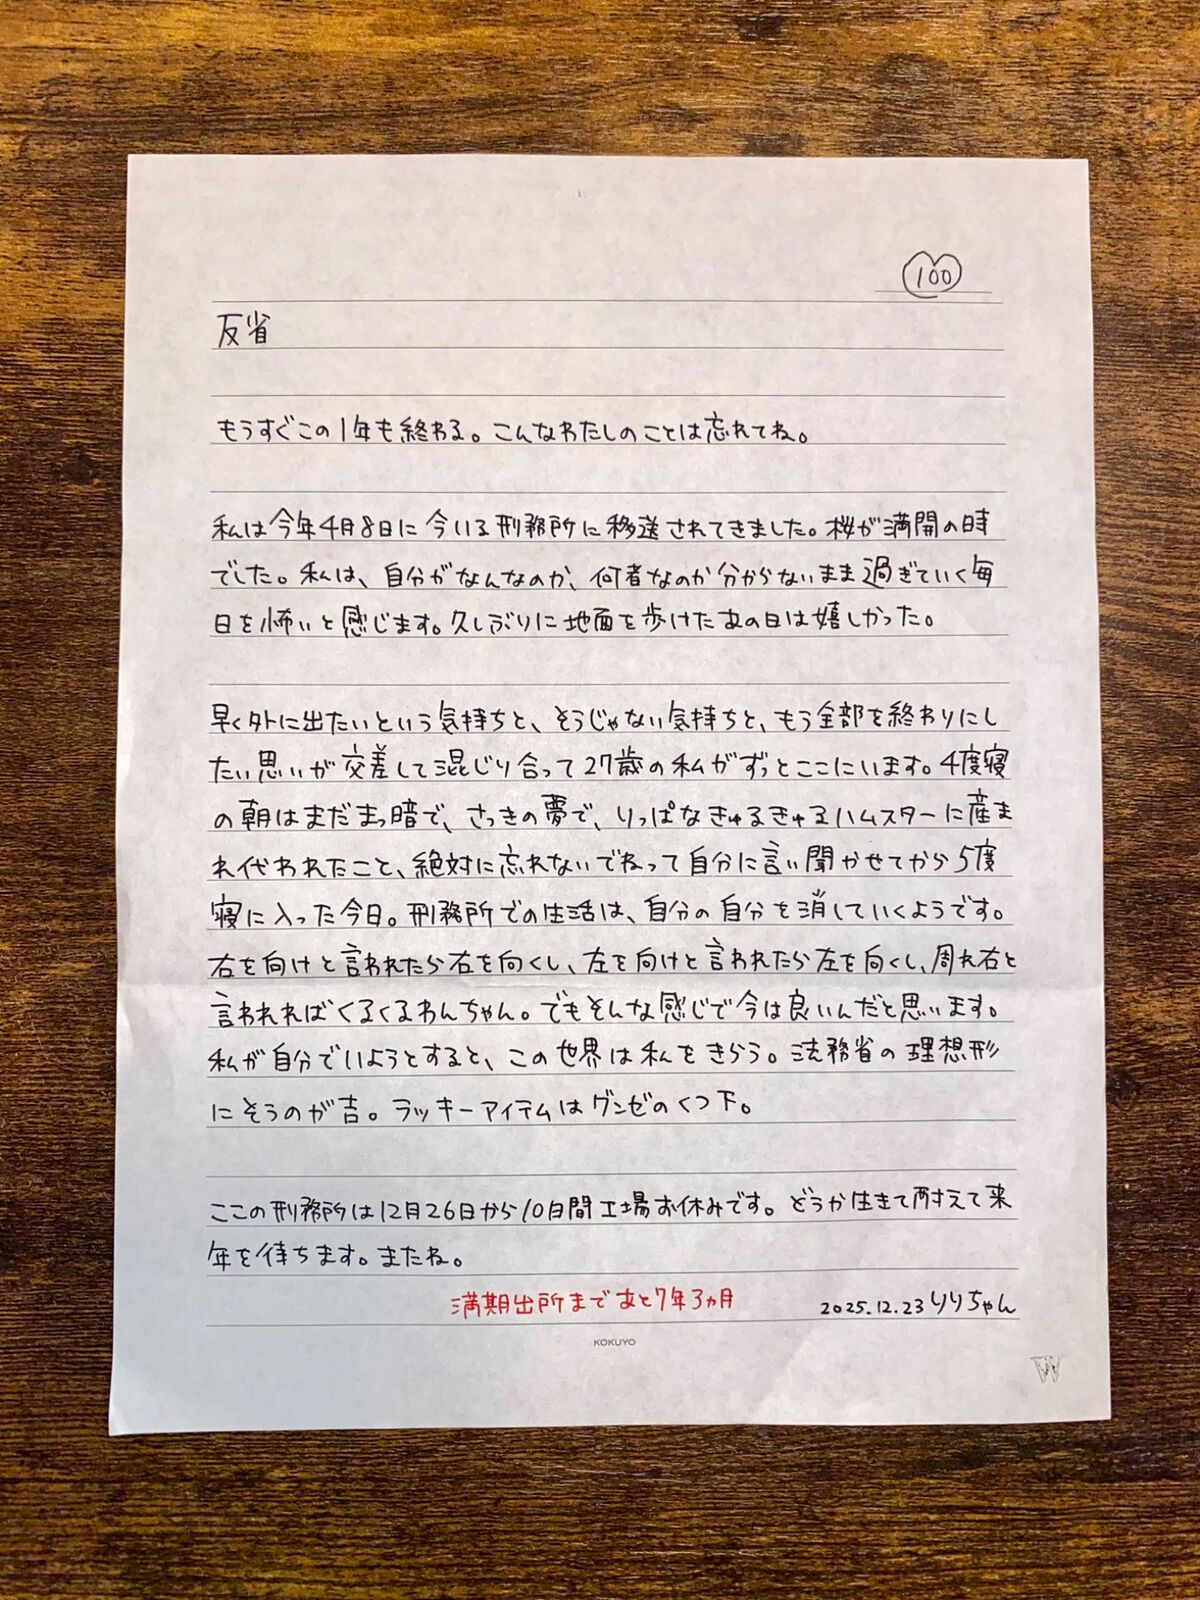 100
反省
もうすぐこの1年も終わる。こんなわたしのことは忘れてね。
私は今年4月8日に今いる刑務所に移送されてきました。桜が満開の時
でした。私は、自分がなんなのか、何者なのか分からないまま過ぎていく毎
日を怖いと感じます。久しぶりに地面を歩けたあの日は嬉しかった。
早く外に出たいという気持ちと、そうじゃない気持ちと、もう全部を終わりにし
たい思いが交差して混じり合って27歳の私がずっとここにいます。4度寝
の朝はまだまっ暗で、さっきの夢で、りっぱなきゅるきゅるハムスターに産ま
れ代われたこと、絶対に忘れないでねって自分に言い聞かせてから5度
寝に入った今日。刑務所での生活は、自分の自分を消していくようです。
右を向けと言われたら右を向くし、左を向けと言われたら左を向くし、周れ右と
言われればくるくるわんちゃん。でもそんな感じで今は良いんだと思います。
私が自分でいようとすると、この世界は私をきらう。法務省の理想形
にそうのが吉。ラッキーアイテムはグンゼのくつ下。
ここの刑務所は12月26日から10日間工場お休みです。どうか生きて耐えて来
年を待ちます。またね。
満期出所まであと7年3ヵ月 2025.12.23りりちゃん
KOKUYO
W